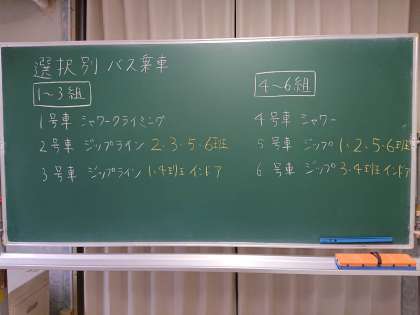 選択別 バス乗車
1〜3組
1号車 シャワークライミング
2号車 ジップライン 2・3・5・6班
3号車 ジップライン 1・4班 インドア
4〜6組
4号車 シャワー
5号車 ジップ 1・2・5・6班
6号車 ジップ 3・4班 インドア